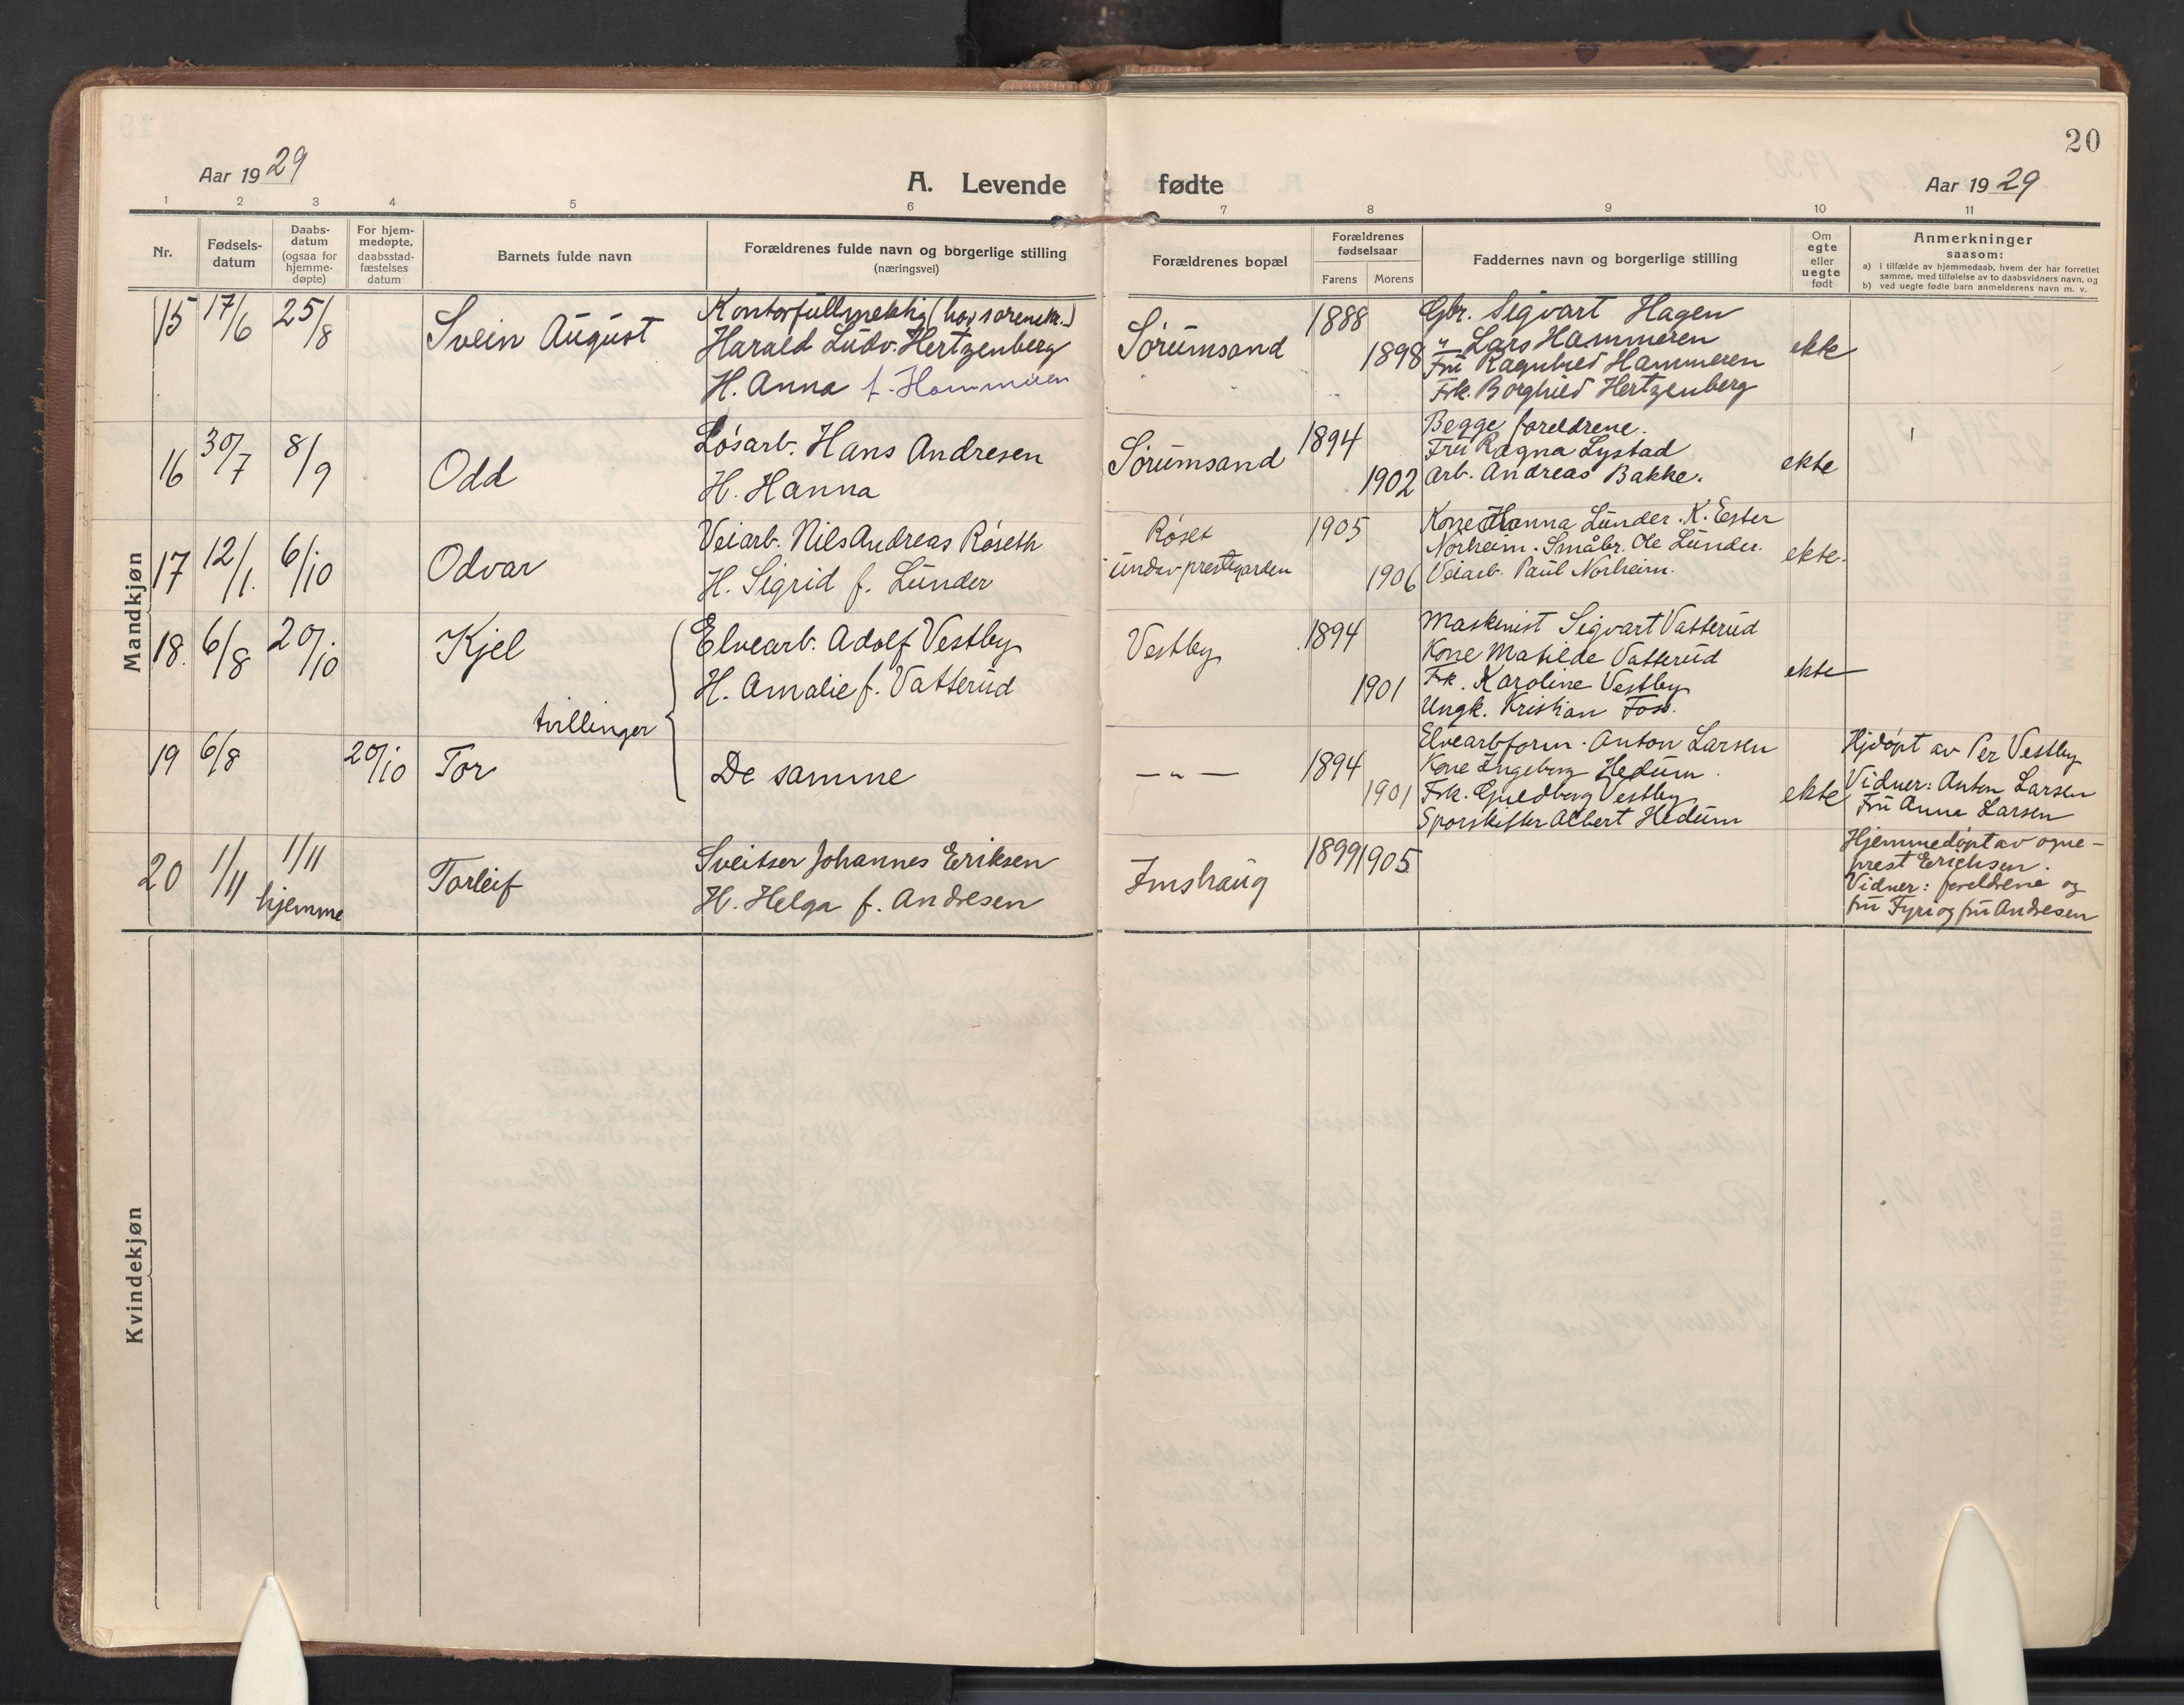 20
Aar 1929
A. Levende fødte
Aar 1929
1 2 3 4 5 6 7 8 9 10 11
Nr.
Fødsels-
datum
Daabs-
datum
(ogsaa for
hjemme-
døpte)
For hjem-
medøpte,
daabsstad-
fæstelses
datum
Barnets fulde navn
Forældrenes fulde navn og borgerlige stilling
(næringsvei)
Forældrenes bopæl
Forældrenes
fødselsaar
Farens Morens
Faddernes navn og borgerlige stilling
Om
egte
eller
uegte
født
Anmerkninger
saasom:
a) i tilfælde av hjemmedaab, hvem der har forrettet
samme, med tilføielse av to daabsvidners navn, og
b) ved uegte fødte barn anmelderens navn m. v.
Mandkjøn
15 17/6 25/8
Svein August
Kontorfullmektig (hos sorenskr.)
Harald Ludv. Hertzenberg
H. Anna f. Hammeren
Sørumsand
1888
1898
Gbr. Sigvart Hagen
" Lars Hammeren
Fru Ragnhild Hammeren
Frk. Borghild Hertzenberg
ekte
16 30/7 8/9
Odd
Løsarb. Hans Andresen
H. Hanna
Sørumsand
1894
1902
Begge foreldrene.
Fru Ragna Lystad
Arb. Andreas Bakke.
ekte
17 12/1. 6/10
Odvar
Veiarb. Nils Andreas Røseth
H. Sigrid f. Lunder
Røset
under prestegarden
1905
1906
Kone Hanna Lunder. K. Ester
Norheim. Småbr. Ole Lunder.
Veiarb. Paul Norheim.
ekte.
18. 6/8 20/10
Kjel
Elvearb. Adolf Vestby
H. Amalie f. Vatterud
Vestby
1894
1901
Maskinist Sigvart Vatterud
Kone Matilde Vatterud
Frk. Karoline Vestby
Ungk. Kristian Foss.
ekte
tvillinger
19 6/8 20/10
Tor
De samme
— " —
1894
1901
Elvearbform. Anton Larsen
Kone Ingeborg Hedum.
Frk. Guldborg Vestby
Sporskifter Albert Hedum
ekte
Hjdøpt av Per Vestby
Vidner: Anton Larsen
Fru Anna Larsen
20 1/11 1/11
hjemme
Torleif
Sveitser Johannes Eriksen
H. Helga f. Andresen
Imshaug
1899 1905
Hjemmedøpt av sogne-
prest Erichsen.
Vidner: foreldrene og
fru Fyri og fru Andresen
Kvindekjøn